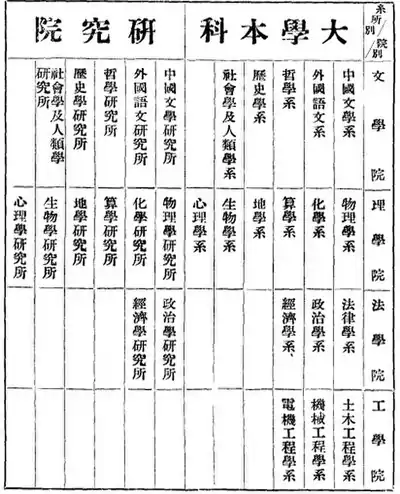 系所別
院別
大學本科
研究院
文學院
中國文學系
外國語文系
哲學系
歷史學系
社會學及人類學系
中國文學研究所
外國語文研究所
哲學研究所
歷史學研究所
社會學及人類學
研究所
理學院
物理學系
化學系
算學系
地學系
生物學系
心理學系
物理學研究所
化學研究所
算學研究所
地學研究所
生物學研究所
心理學研究所
法學院
法律學系
政治學系
經濟學系、
政治學研究所
經濟學研究所
工學院
土木工程學系
機械工程學系
電機工程學系